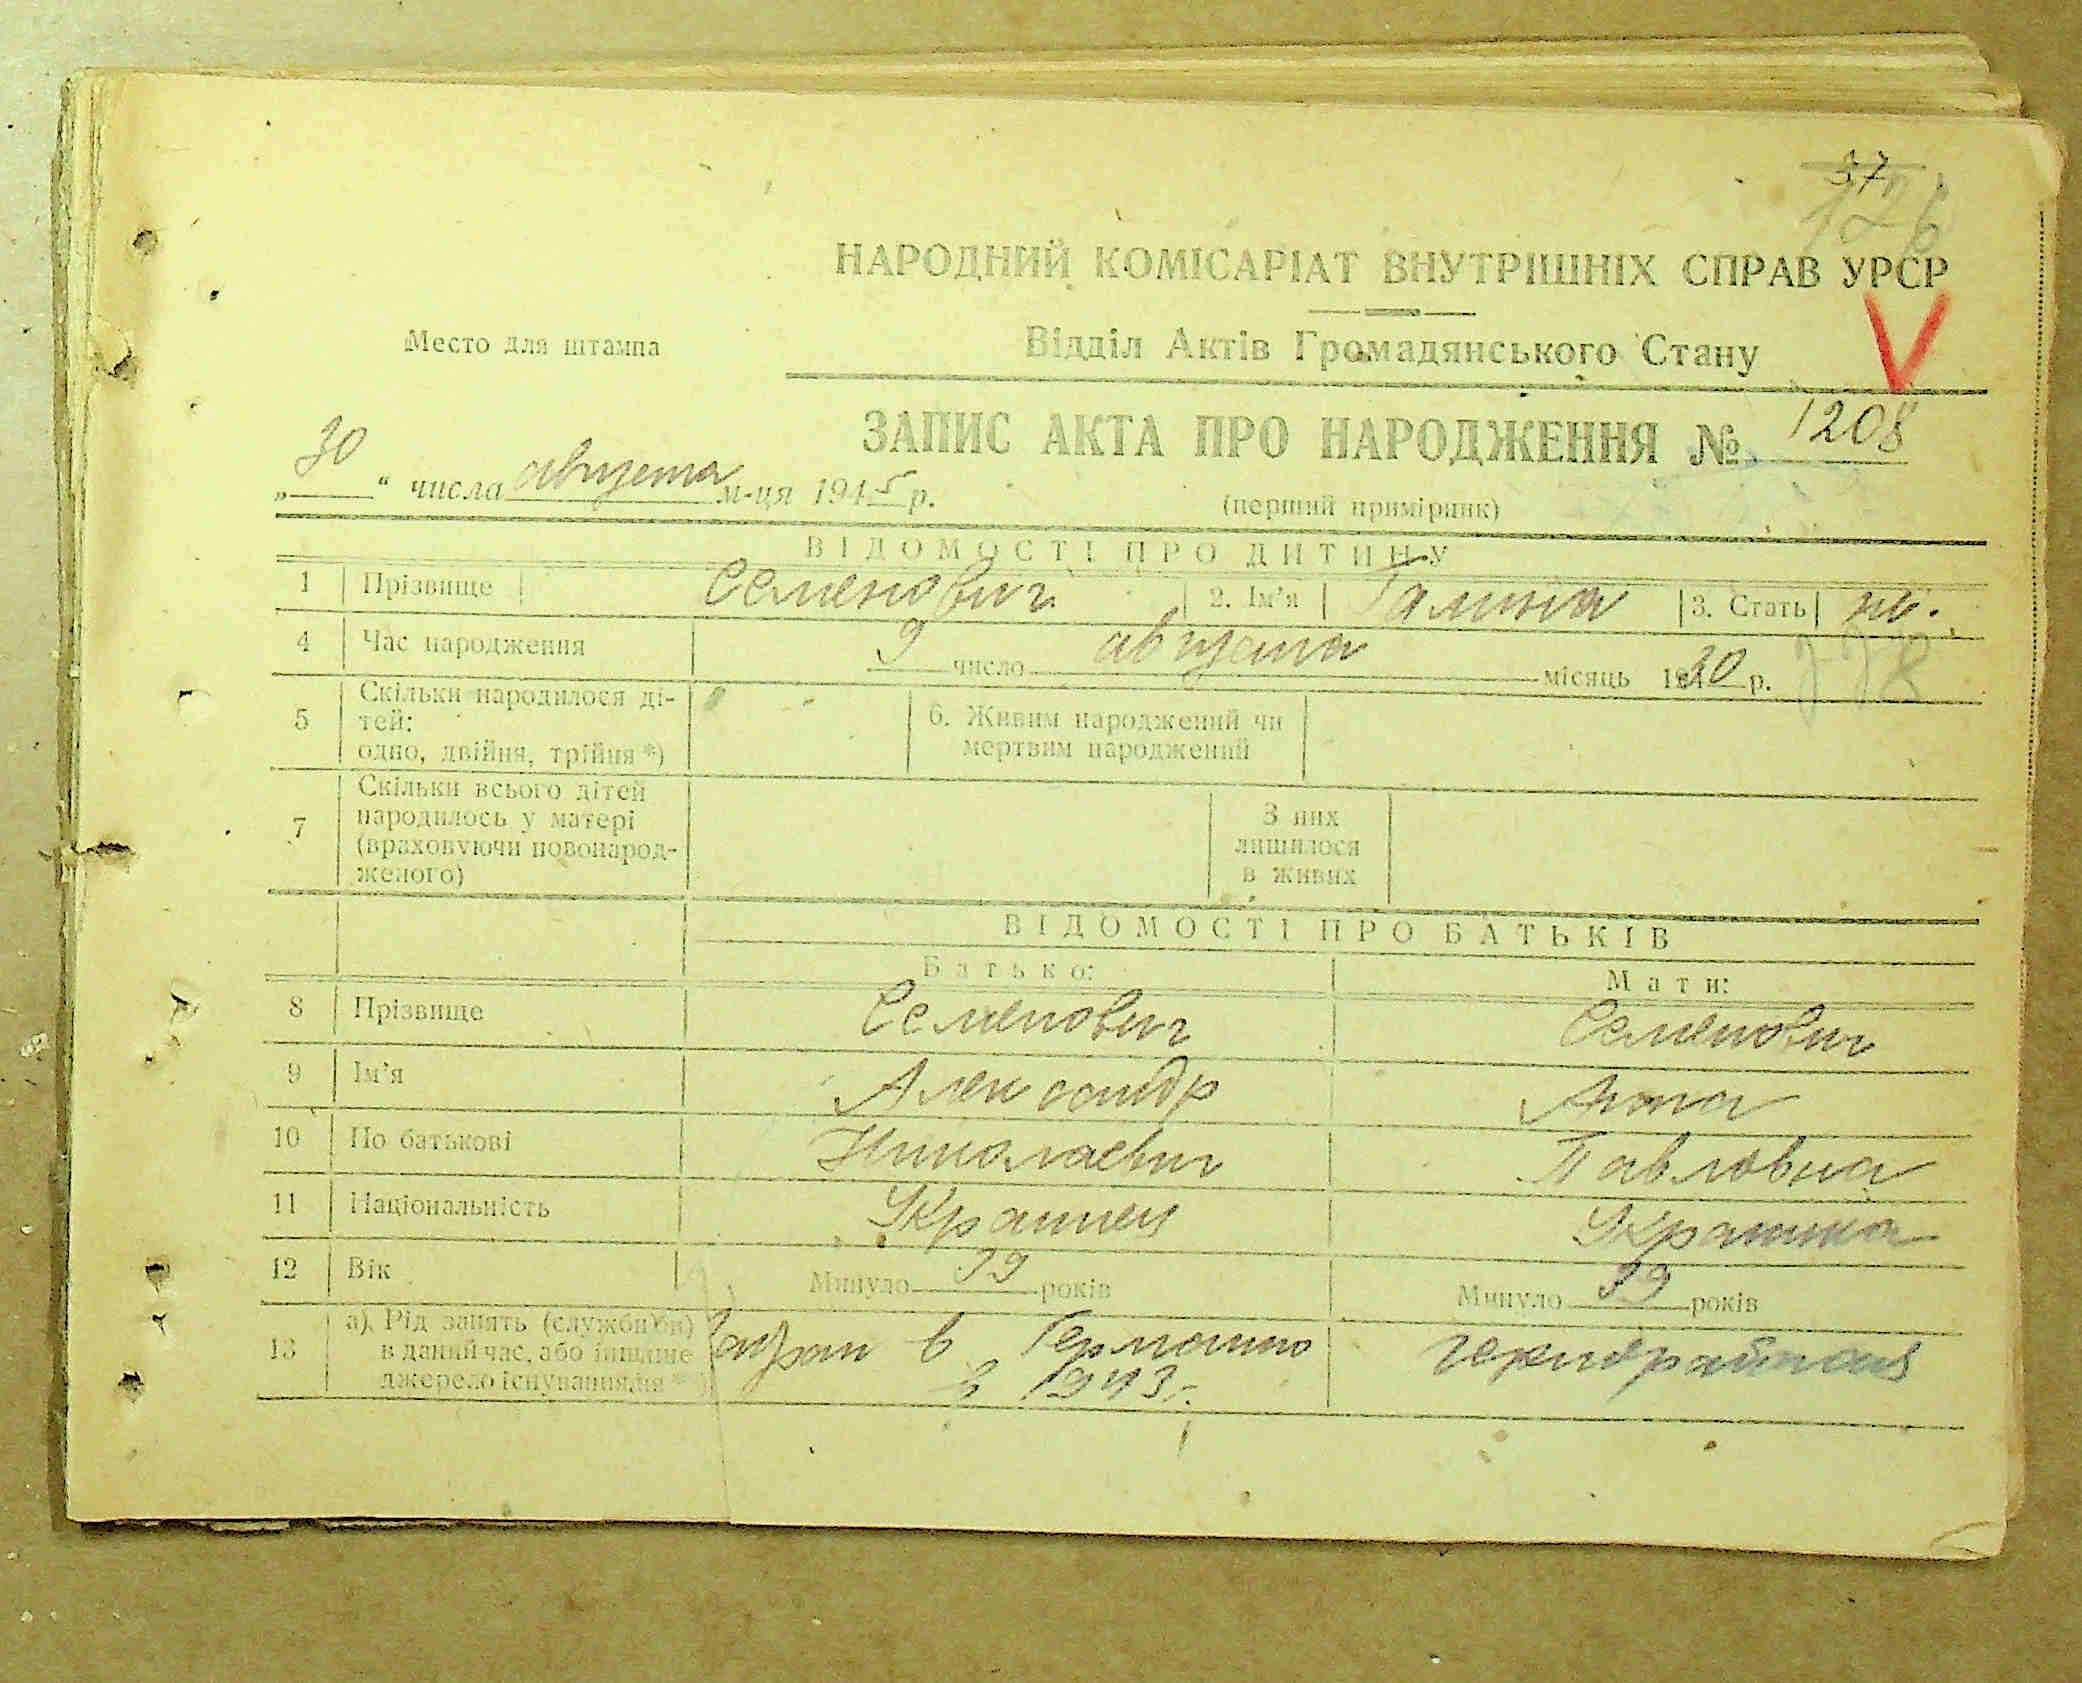 37
126
НАРОДНИЙ КОМІСАРІАТ ВНУТРІШНІХ СПРАВ УРСР
V
Место для штампа
Відділ Актів Громадянського Стану
ЗАПИС АКТА ПРО НАРОДЖЕННЯ № 1208
„30“ числа августа м-ця 1945 р.
(перший примірник)
ВІДОМОСТІ ПРО ДИТИНУ
1 Прізвище Семенович 2. Ім'я Галина 3. Стать ж.
4 Час народження 9 число августа місяць 1930 р.
5 Скільки народилося ді-
тей:
одно, двійня, трійня *)
6. Живим народжений чи
мертвим народжений
7 Скільки всього дітей
народилось у матері
(враховуючи новонарод-
женого)
З них
лишилося
в живих
ВІДОМОСТІ ПРО БАТЬКІВ
Батько: Мати:
8 Прізвище Семенович Семенович
9 Ім'я Александр Анна
10 По батькові Николаевич Павловна
11 Національність Украинец Украинка
12 Вік Минуло 39 років Минуло 39 років
13 а) Рід занять (служби)
в даний час, або інше
джерело існування *)
в Германию
в 1943 г.